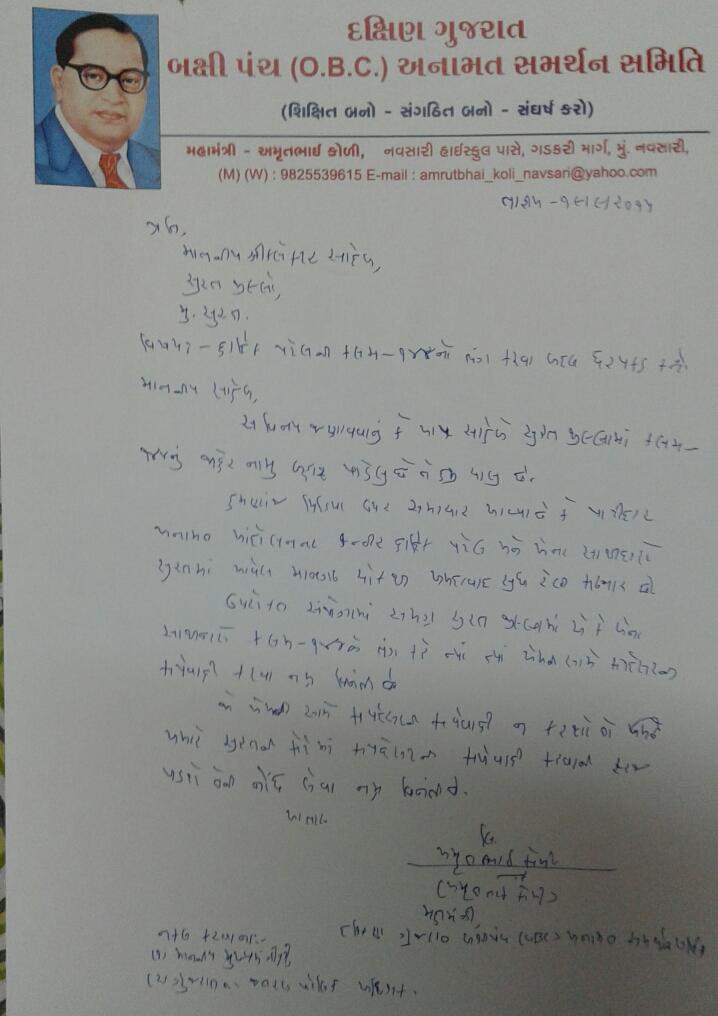 દક્ષિણ ગુજરાત
બક્ષી પંચ (O.B.C.) અનામત સમર્થન સમિતિ
(શિક્ષિત બનો - સંગઠિત બનો - સંઘર્ષ કરો)
મહામંત્રી - અમૃતભાઈ કોળી, નવસારી હાઈસ્કુલ પાસે, ગડકરી માર્ગ, મું. નવસારી,
(M) (W) : 9825539615 E-mail : amrutbhai_koli_navsari@yahoo.com
પ્રતિ,
માનનીય કલેકટર સાહેબ,
સુરત જીલ્લો,
મુ. સુરત.
હાર્દિક પટેલના કલમ-૧૪૪નો ભંગ કરવા બદલ ધરપકડ
માનનીય સાહેબ,
સવિનય જણાવવાનું કે આપ સાહેબે સુરત જીલ્લામાં કલમ-
૧૪૪નું જાહેર નામુ બહાર પાડેલુ છે
મિડિયા ઉપર સમાચાર આવ્યા છે કે પાટીદાર
અનામત આંદોલનના કન્વીનર હાર્દિક પટેલ અને એના સાથીદારો
સુરતમાં આવેલ માનગઢ ચોકથી અમદાવાદ સુધી
ઉપરોક્ત સંજોગોમાં સમગ્ર સુરત જીલ્લામાં એ કે એના
કલમ-૧૪૪નો ભંગ કરે ત્યાં ત્યાં એમની સામે કાયદેસરની
કાર્યવાહી કરવા નમ્ર વિનંતી છે
જો એમની સામે કાયદેસરની કાર્યવાહી ન કરશો તો
અમારે સુરતની કોર્ટમાં કાયદેસરની કાર્યવાહી કરવાની ફરજ
પડશે તેની નોંધ લેવા નમ્ર વિનંતી છે.
લિ.
અમૃતભાઈ કોળી
(અમૃતભાઈ કોળી)
મહામંત્રી
દક્ષિણ ગુજરાત બક્ષીપંચ (OBC) અનામત સમર્થન સમિતિ
નકલ રવાના:-
(૧) માનનીય મુખ્યમંત્રીશ્રી